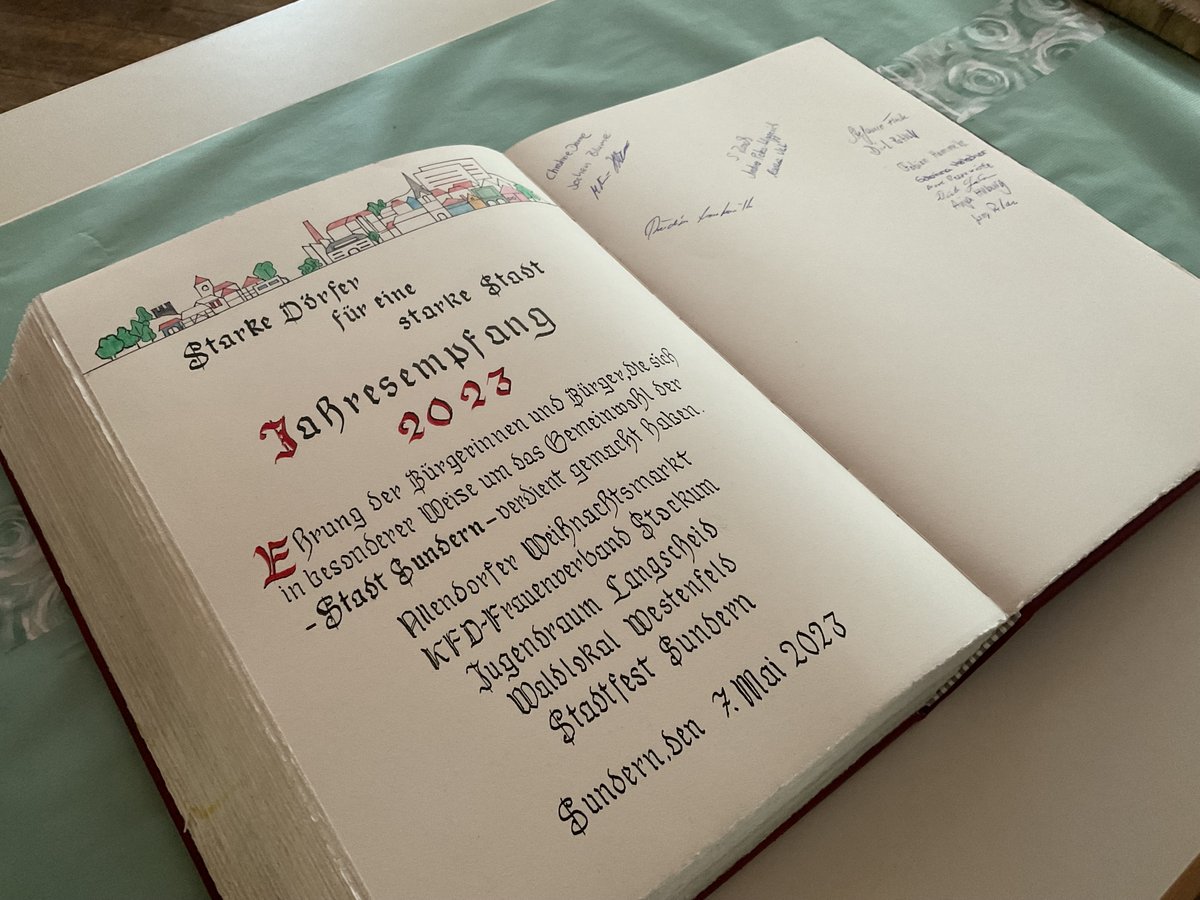 Starke Dörfer
für eine
starke Stadt
Jahresempfang
2023
Ehrung der Bürgerinnen und Bürger, die sich
in besonderer Weise um das Gemeinwohl der
-Stadt Sundern- verdient gemacht haben.
Allendorfer Weihnachtsmarkt
KFD-Frauenverband Stockum
Jugendraum Langscheid
Waldlokal Westenfeld
Stadtfest Sundern
Sundern, den 7. Mai 2023